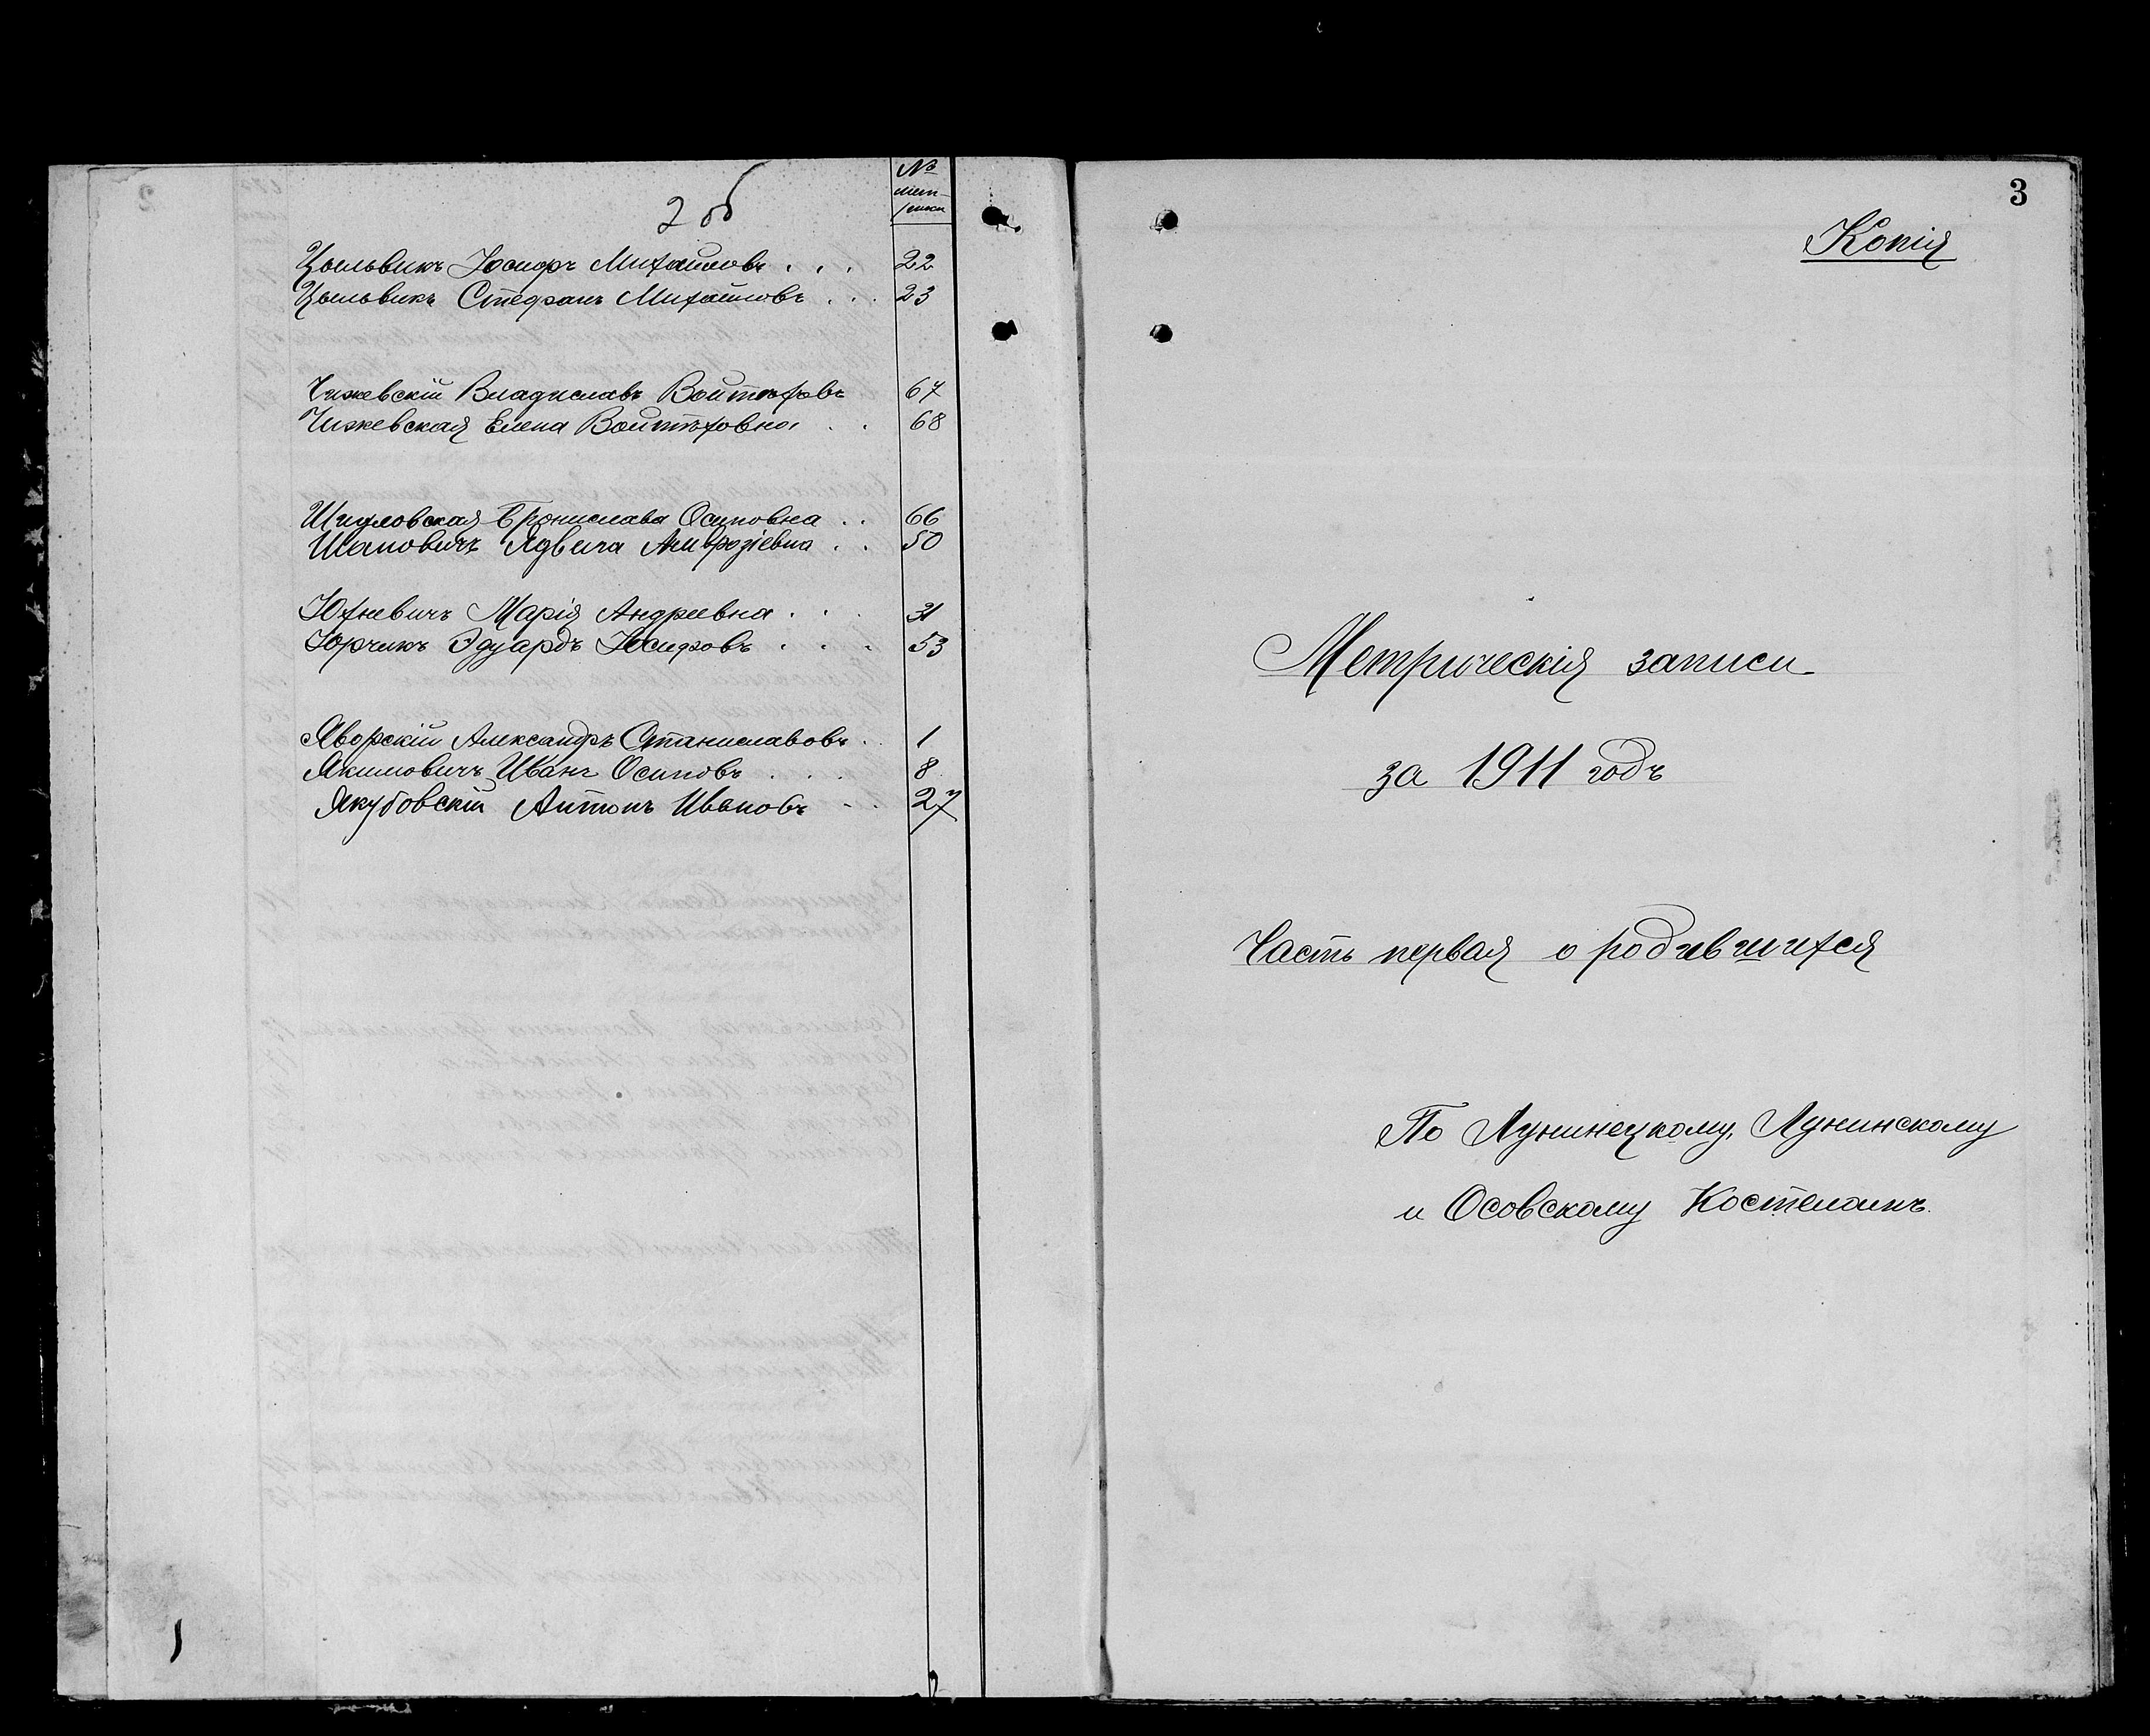 2 об
№
мет-
рики
Цыльвикъ Іосифъ Михайловъ . . . 22
Цыльвикъ Стефанъ Михайловъ . . . 23
Чижевскій Владиславъ Войтѣховъ 67
Чижевская Елена Войтѣховна . . 68
Бронислава Осиповна . . 66
Шановичъ Ядвига Амвросіевна . . 50
Юхневичъ Марія Андреевна . . . 31
Юрчикъ Эдуардъ Іосифовъ . . . 53
Яворскій Александръ Станиславовъ . . 1
Якимовичъ Иванъ Осиповъ . . . 8
Якубовскій Антонъ Ивановъ . . 27
3
Копія
Метрическія записи
за 1911 годъ
Часть первая о родившихся
По Лунинецкому, Лунинскому
и Осовскому Костеламъ.